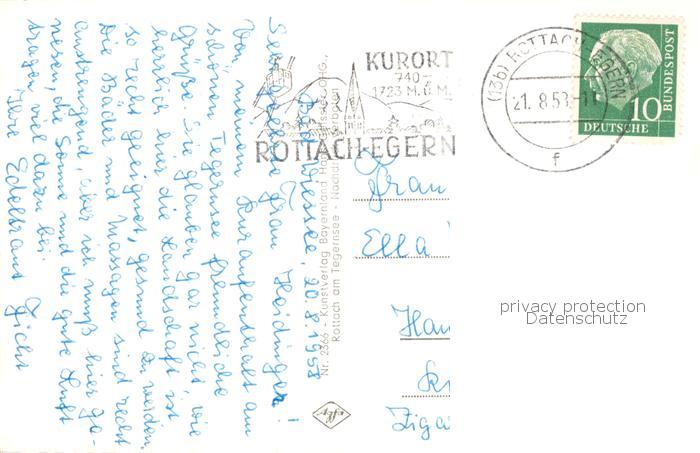 Bad Wiessee, 20.8.1958
Sehr geehrte Frau Heidinger!
Von meinem Kuraufenthalt am
schönen Tegernsee freundliche
Grüße. Sie glauben gar nicht, wie
herrlich hier die Landschaft ist
so recht geeignet, gesund zu werden.
Die Bäder und Massagen sind recht
anstrengend, aber ich muß hier ge-
nesen, die Sonne und die gute Luft
tragen viel dazu bei.
Ihre Edeltraut Ficht
Nr. 2366 - Kunstverlag Bayernland
Rottach am Tegernsee
KURORT
740-
1723 M.Ü.M.
ROTTACH-EGERN
(13b) ROTTACH-EGERN
21.8.58-11
f
DEUTSCHE
BUNDESPOST
10
Frau
Ella
Zigar
privacy protection
Datenschutz